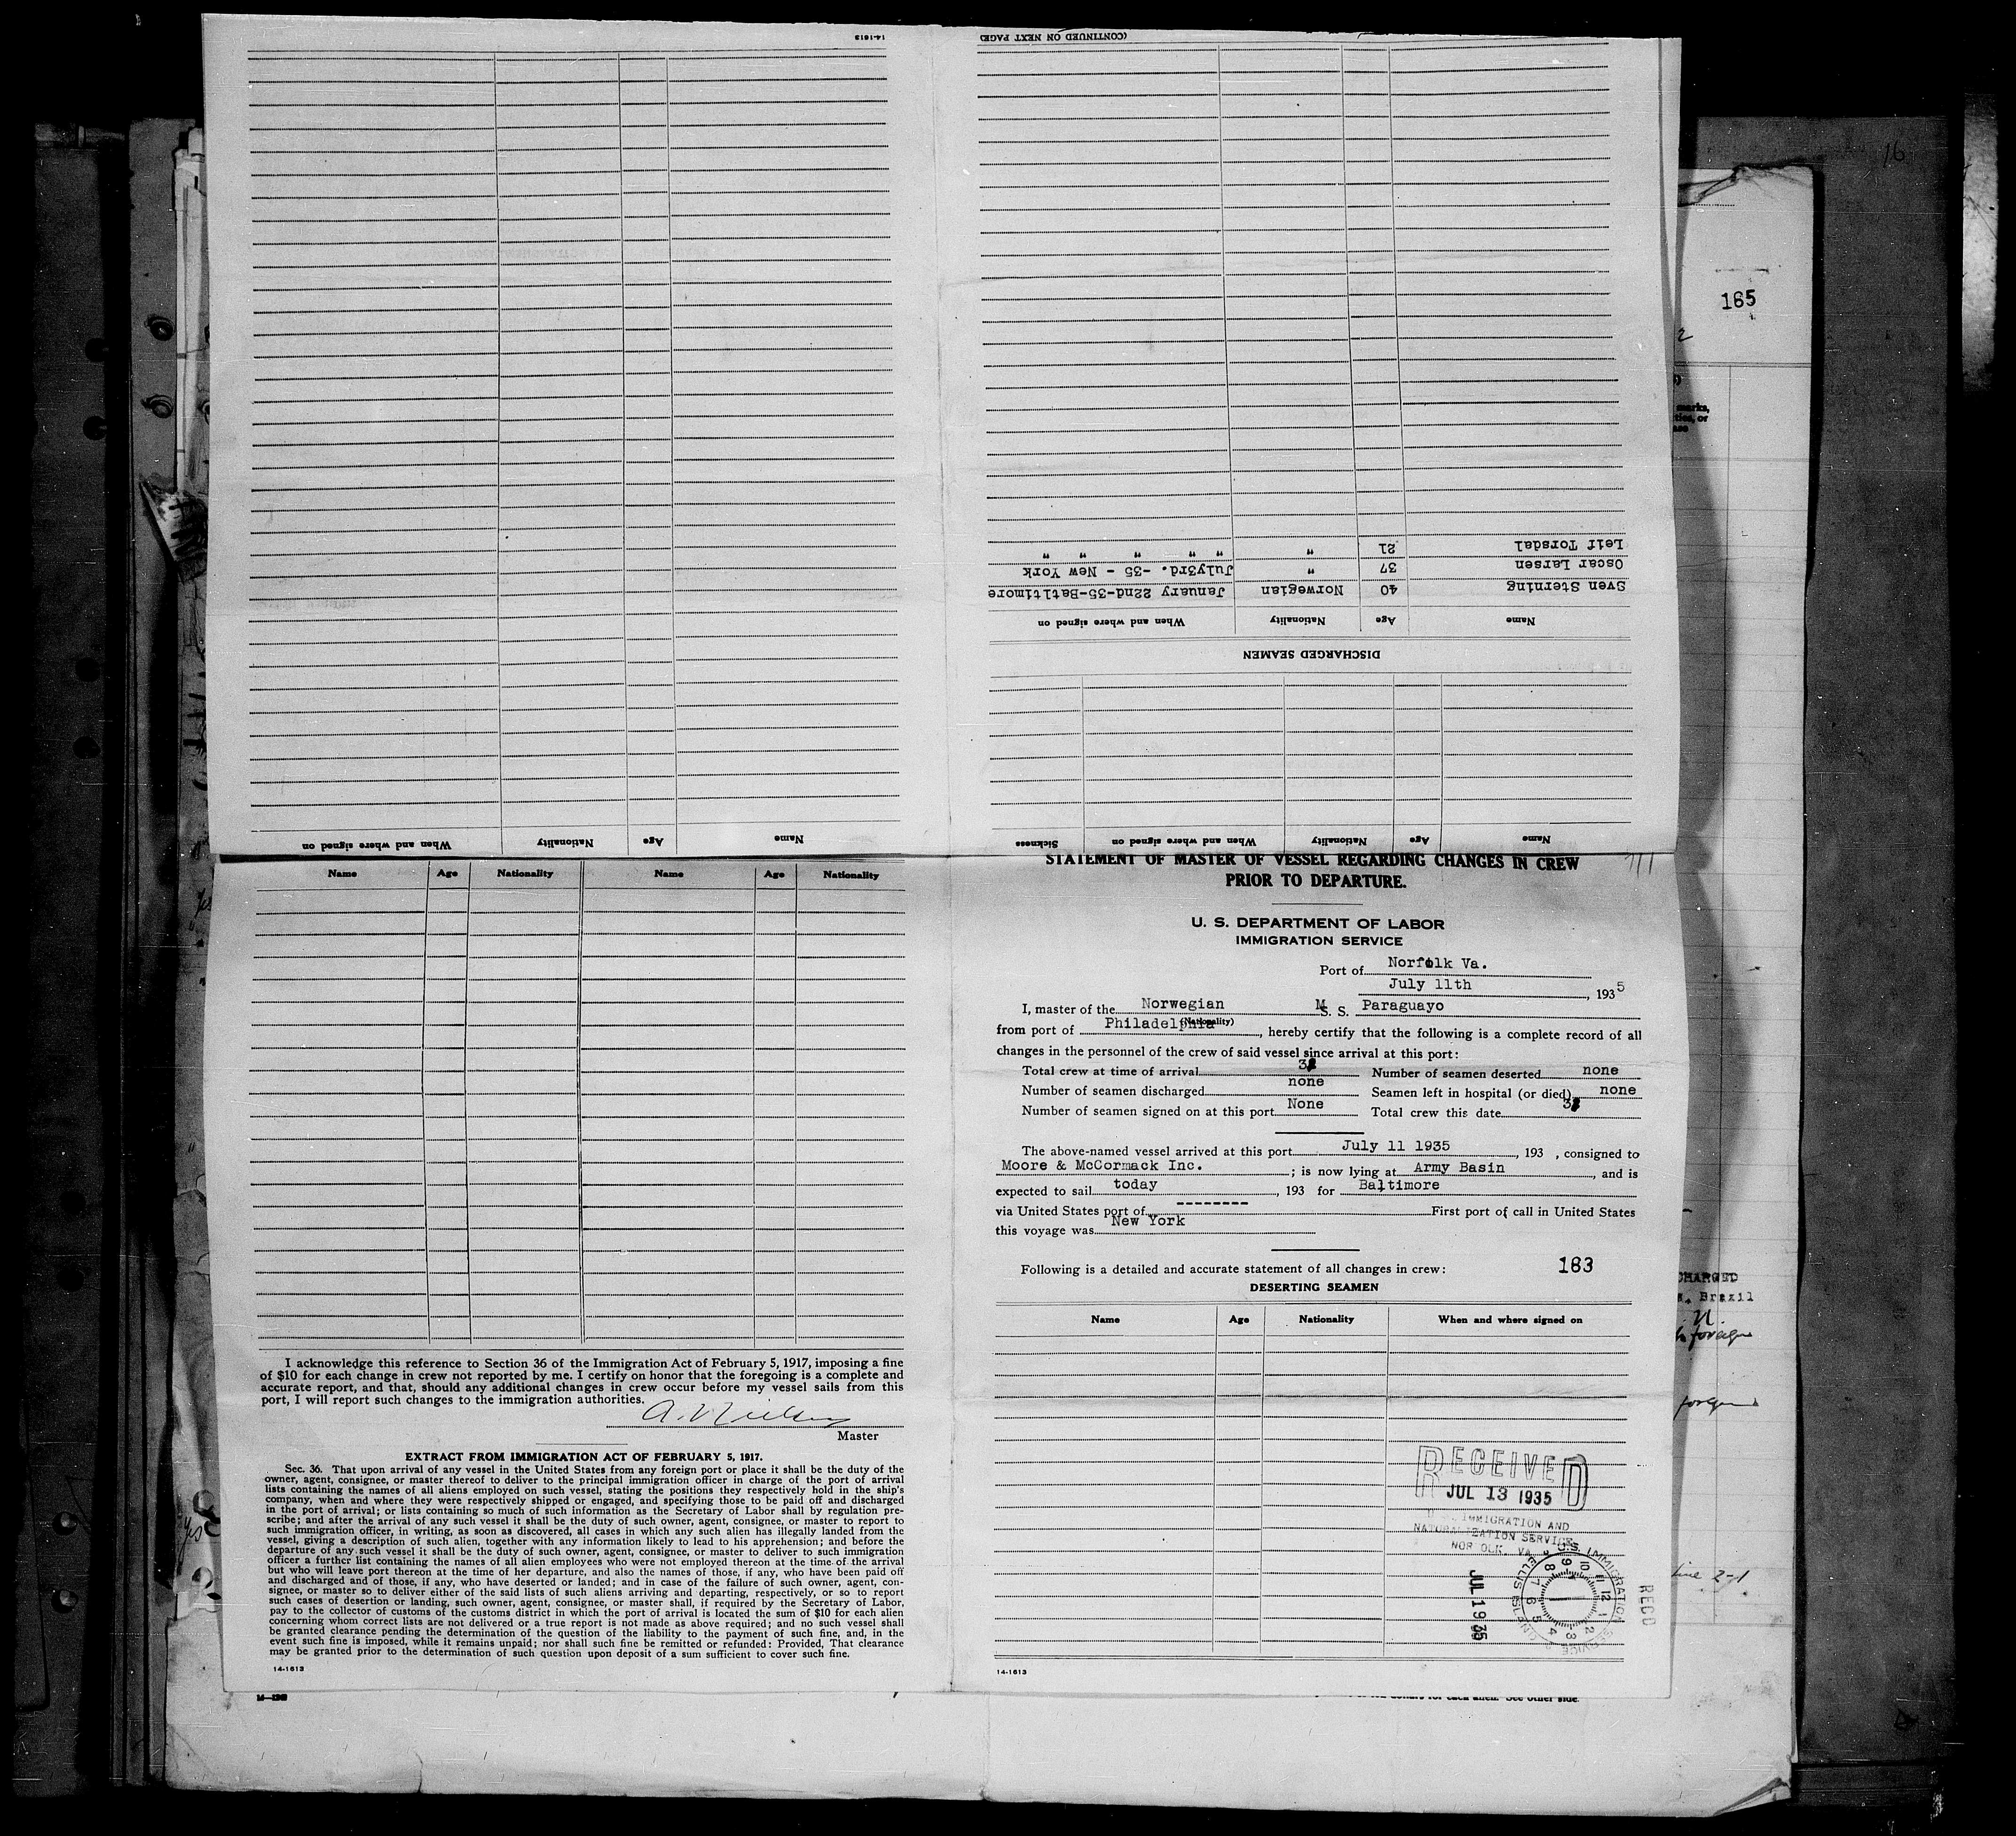 14-1613
(CONTINUED ON NEXT PAGE)
Leif Torsdal 21 " " " " " "
Oscar Larsen 37 " July3rd. -35 - New York
Sven Sterning 40 Norwegian January 22nd-35-Baltimore
Name Age Nationality When and where signed on
DISCHARGED SEAMEN
Name Age Nationality When and where signed on Sickness
Name Age Nationality When and where signed on
16
165
2
marks,
ties, or
Name Age Nationality Name Age Nationality
I acknowledge this reference to Section 36 of the Immigration Act of February 5, 1917, imposing a fine
of $10 for each change in crew not reported by me. I certify on honor that the foregoing is a complete and
accurate report, and that, should any additional changes in crew occur before my vessel sails from this
port, I will report such changes to the immigration authorities.
Master
EXTRACT FROM IMMIGRATION ACT OF FEBRUARY 5, 1917.
Sec. 36. That upon arrival of any vessel in the United States from any foreign port or place it shall be the duty of the
owner, agent, consignee, or master thereof to deliver to the principal immigration officer in charge of the port of arrival
lists containing the names of all aliens employed on such vessel, stating the positions they respectively hold in the ship's
company, when and where they were respectively shipped or engaged, and specifying those to be paid off and discharged
in the port of arrival; or lists containing so much of such information as the Secretary of Labor shall by regulation pre-
scribe; and after the arrival of any such vessel it shall be the duty of such owner, agent, consignee, or master to report to
such immigration officer, in writing, as soon as discovered, all cases in which any such alien has illegally landed from the
vessel, giving a description of such alien, together with any information likely to lead to his apprehension; and before the
departure of any such vessel it shall be the duty of such owner, agent, consignee, or master to deliver to such immigration
officer a further list containing the names of all alien employees who were not employed thereon at the time of the arrival
but who will leave port thereon at the time of her departure, and also the names of those, if any, who have been paid off
and discharged and of those, if any, who have deserted or landed; and in case of the failure of such owner, agent, con-
signee, or master so to deliver either of the said lists of such aliens arriving and departing, respectively, or so to report
such cases of desertion or landing, such owner, agent, consignee, or master shall, if required by the Secretary of Labor,
pay to the collector of customs of the customs district in which the port of arrival is located the sum of $10 for each alien
concerning whom correct lists are not delivered or a true report is not made as above required; and no such vessel shall
be granted clearance pending the determination of the question of the liability to the payment of such fine, and, in the
event such fine is imposed, while it remains unpaid; nor shall such fine be remitted or refunded: Provided, That clearance
may be granted prior to the determination of such question upon deposit of a sum sufficient to cover such fine.
14-1613
STATEMENT OF MASTER OF VESSEL REGARDING CHANGES IN CREW
PRIOR TO DEPARTURE.
U. S. DEPARTMENT OF LABOR
IMMIGRATION SERVICE
Port of Norfolk Va.
July 11th, 1935
I, master of the Norwegian M S. S. Paraguayo
(Nationality)
from port of Philadelphia, hereby certify that the following is a complete record of all
changes in the personnel of the crew of said vessel since arrival at this port:
Total crew at time of arrival Number of seamen deserted none
Number of seamen discharged none Seamen left in hospital (or died) none
Number of seamen signed on at this port None Total crew this date
The above-named vessel arrived at this port July 11 1935, 193 , consigned to
Moore & McCormack Inc. ; is now lying at Army Basin, and is
expected to sail today, 193 for Baltimore
via United States port of -------- First port of call in United States
this voyage was New York
Following is a detailed and accurate statement of all changes in crew: 183
DESERTING SEAMEN
Name Age Nationality When and where signed on
RECEIVED
JUL 13 1935
IMMIGRATION AND
NATURALIZATION SERVICE
NORFOLK, VA.
U.S. IMMIGRATION SERVICE
ELLIS ISLAND
RECD
14-1613
CHARGED
Brazil
foreign
foreign
line 2-1
See other side.